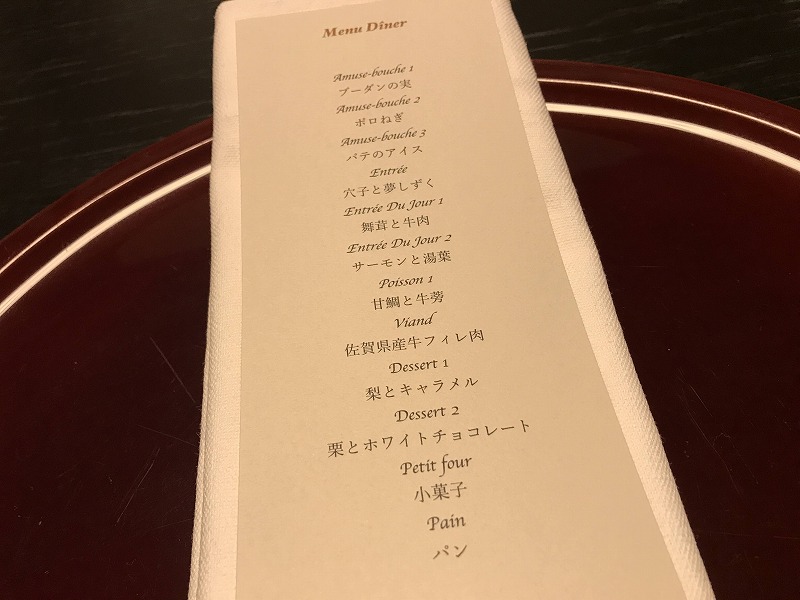 Menu Dîner
Amuse-bouche 1
ブーダンの実
Amuse-bouche 2
ポロねぎ
Amuse-bouche 3
パテのアイス
Entrée
穴子と夢しずく
Entrée Du Jour 1
舞茸と牛肉
Entrée Du Jour 2
サーモンと湯葉
Poisson 1
甘鯛と牛蒡
Viand
佐賀県産牛フィレ肉
Dessert 1
梨とキャラメル
Dessert 2
栗とホワイトチョコレート
Petit four
小菓子
Pain
パン